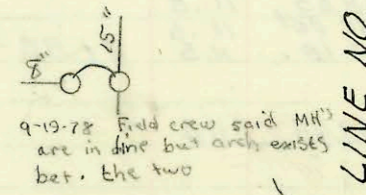 8"
15"
9-19-78 Field crew said MH's
are in line but arch exists
bet. the two
LINE NO